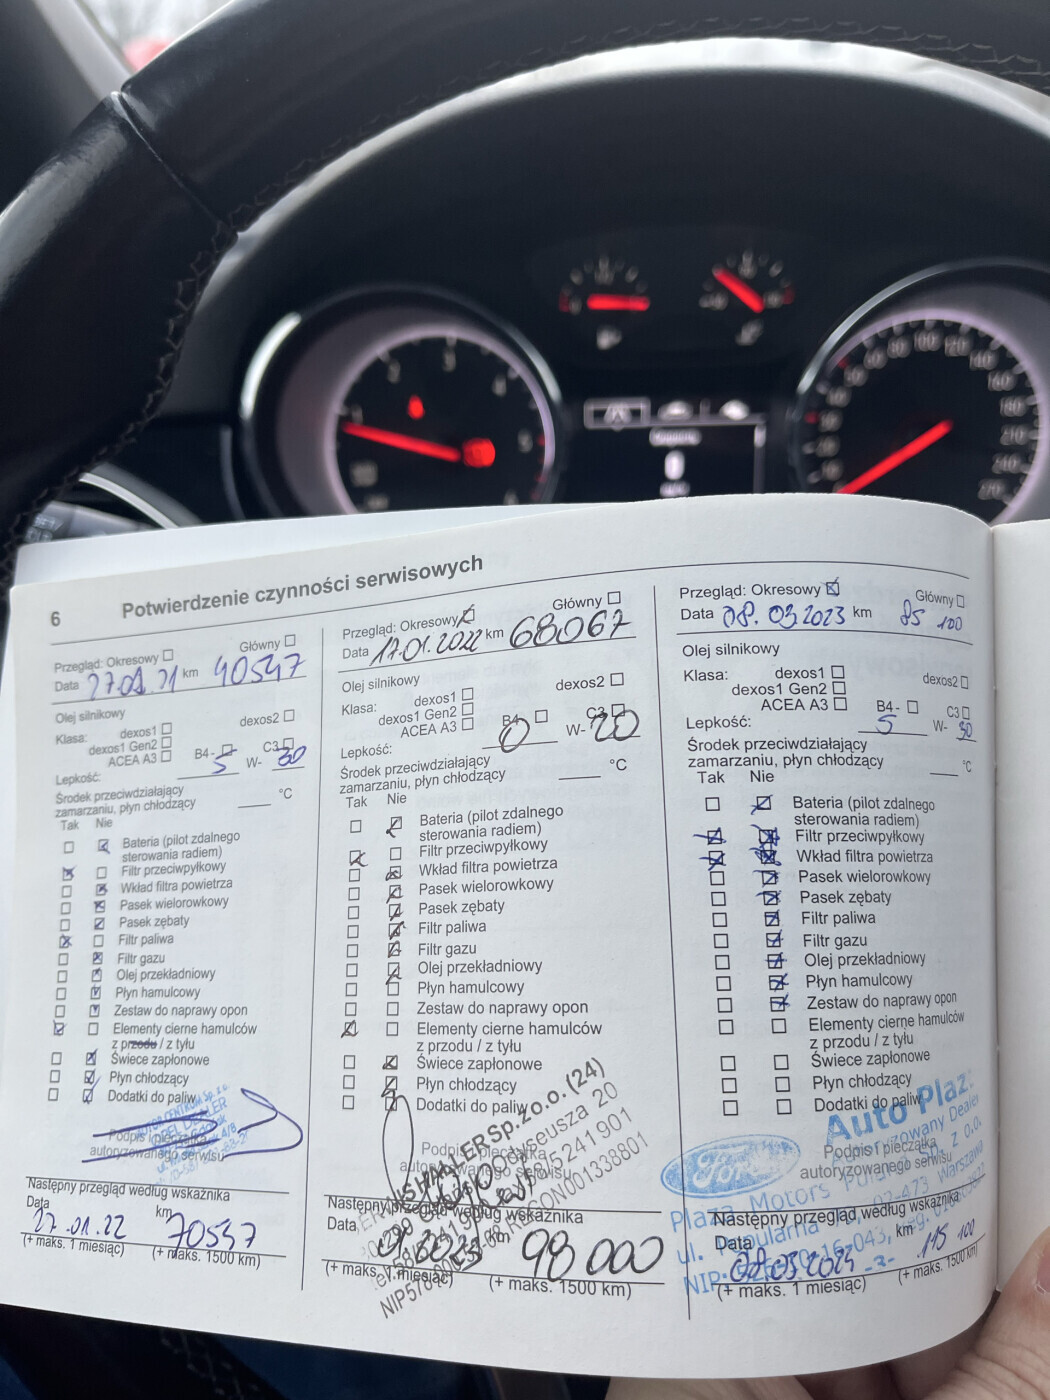 6
Potwierdzenie czynności serwisowych
Przegląd: Okresowy
Główny
Data 27.01.21 km 40547
Olej silnikowy
Klasa:
dexos1
dexos2
dexos1 Gen2
ACEA A3
B4-
C3
Lepkość: 5 W- 30
Środek przeciwdziałający
zamarzaniu, płyn chłodzący
°C
Tak Nie
Bateria (pilot zdalnego
sterowania radiem)
Filtr przeciwpyłkowy
Wkład filtra powietrza
Pasek wielorowkowy
Pasek zębaty
Filtr paliwa
Filtr gazu
Olej przekładniowy
Płyn hamulcowy
Zestaw do naprawy opon
Elementy cierne hamulców
z przodu / z tyłu
Świece zapłonowe
Płyn chłodzący
Dodatki do paliw
Podpis i pieczątka
autoryzowanego serwisu
Następny przegląd według wskaźnika
Data
km
27.01.22 70547
(+ maks. 1 miesiąc) (+ maks. 1500 km)
Przegląd: Okresowy
Główny
Data 17.01.2022 km 68067
Olej silnikowy
Klasa:
dexos1
dexos2
dexos1 Gen2
ACEA A3
B4-
C3
Lepkość: 0 W- 20
Środek przeciwdziałający
zamarzaniu, płyn chłodzący
°C
Tak Nie
Bateria (pilot zdalnego
sterowania radiem)
Filtr przeciwpyłkowy
Wkład filtra powietrza
Pasek wielorowkowy
Pasek zębaty
Filtr paliwa
Filtr gazu
Olej przekładniowy
Płyn hamulcowy
Zestaw do naprawy opon
Elementy cierne hamulców
z przodu / z tyłu
Świece zapłonowe
Płyn chłodzący
Dodatki do paliw
Sp. z o.o. (24)
Podpis i pieczątka
Następny przegląd według wskaźnika
Data
km
98000
(+ maks. 1 miesiąc) (+ maks. 1500 km)
Przegląd: Okresowy
Główny
Data 08.03.2023 km 85 100
Olej silnikowy
Klasa:
dexos1
dexos2
dexos1 Gen2
ACEA A3
B4-
C3
Lepkość: 5 W- 30
Środek przeciwdziałający
zamarzaniu, płyn chłodzący
°C
Tak Nie
Bateria (pilot zdalnego
sterowania radiem)
Filtr przeciwpyłkowy
Wkład filtra powietrza
Pasek wielorowkowy
Pasek zębaty
Filtr paliwa
Filtr gazu
Olej przekładniowy
Płyn hamulcowy
Zestaw do naprawy opon
Elementy cierne hamulców
z przodu / z tyłu
Świece zapłonowe
Płyn chłodzący
Dodatki do paliw
Auto Plaza
Ford
Podpis i pieczątka
autoryzowanego serwisu
Autoryzowany Dealer
Plaza Motors
ul. Popularna
Następny przegląd według wskaźnika
Data
km
08.03.2024 115 100
(+ maks. 1 miesiąc) (+ maks. 1500 km)